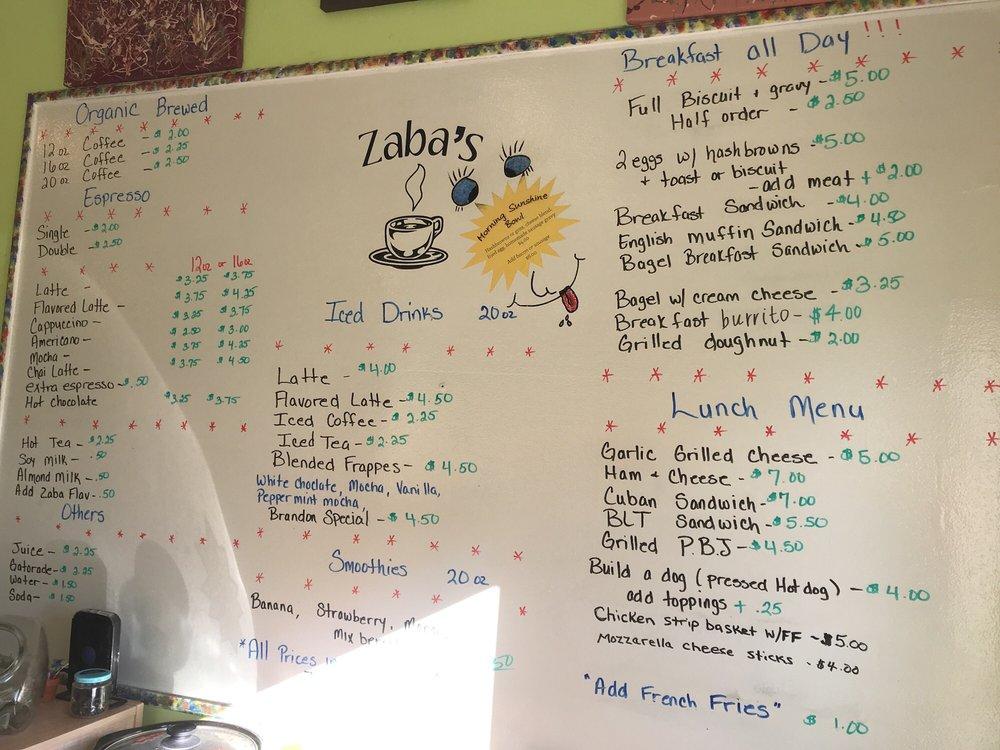 Organic Brewed
12 oz Coffee - $2.00
16 oz Coffee - $2.25
20 oz Coffee - $2.50
Espresso
Single - $2.00
Double - $2.50
12oz or 16oz
Latte - $3.25 $3.75
Flavored Latte - $3.75 $4.25
Cappuccino - $3.25 $3.75
Americano - $2.50 $3.00
Mocha - $3.75 $4.25
Chai Latte - $3.75 $4.50
extra espresso - $.50
Hot chocolate $3.25 $3.75
Hot Tea - $2.25
Soy milk - .50
Almond Milk - .50
Add Zaba Flav - .50
Others
Juice - $2.25
Gatorade - $2.25
Water - $1.50
Soda - $1.50
Zaba's
Morning Sunshine
Bowl
Hashbrowns or grits, cheese blend,
fried egg, homemade sausage gravy
Add bacon or sausage
Iced Drinks 20oz
Latte - $4.00
Flavored Latte - $4.50
Iced Coffee - $2.25
Iced Tea - $2.25
Blended Frappes - $4.50
White choclate, Mocha, Vanilla,
Peppermint mocha,
Brandon Special - $4.50
Smoothies 20oz
Banana, Strawberry,
Mix
*All Prices
50
Breakfast all Day !!!
Full Biscuit + gravy - $5.00
Half order - $2.50
2 eggs w/ hashbrowns - $5.00
+ toast or biscuit
- add meat + $2.00
Breakfast Sandwich - $4.00
English muffin Sandwich - $4.50
Bagel Breakfast Sandwich - $5.00
Bagel w/ cream cheese - $3.25
Breakfast burrito - $4.00
Grilled doughnut - $2.00
Lunch Menu
Garlic Grilled Cheese - $5.00
Ham + Cheese - $7.00
Cuban Sandwich - $7.00
BLT Sandwich - $5.50
Grilled P.B.J - $4.50
Build a dog (pressed Hot dog) - $4.00
add toppings + .25
Chicken strip basket w/FF - $5.00
Mozzarella cheese sticks - $4.00
"Add French Fries" $1.00